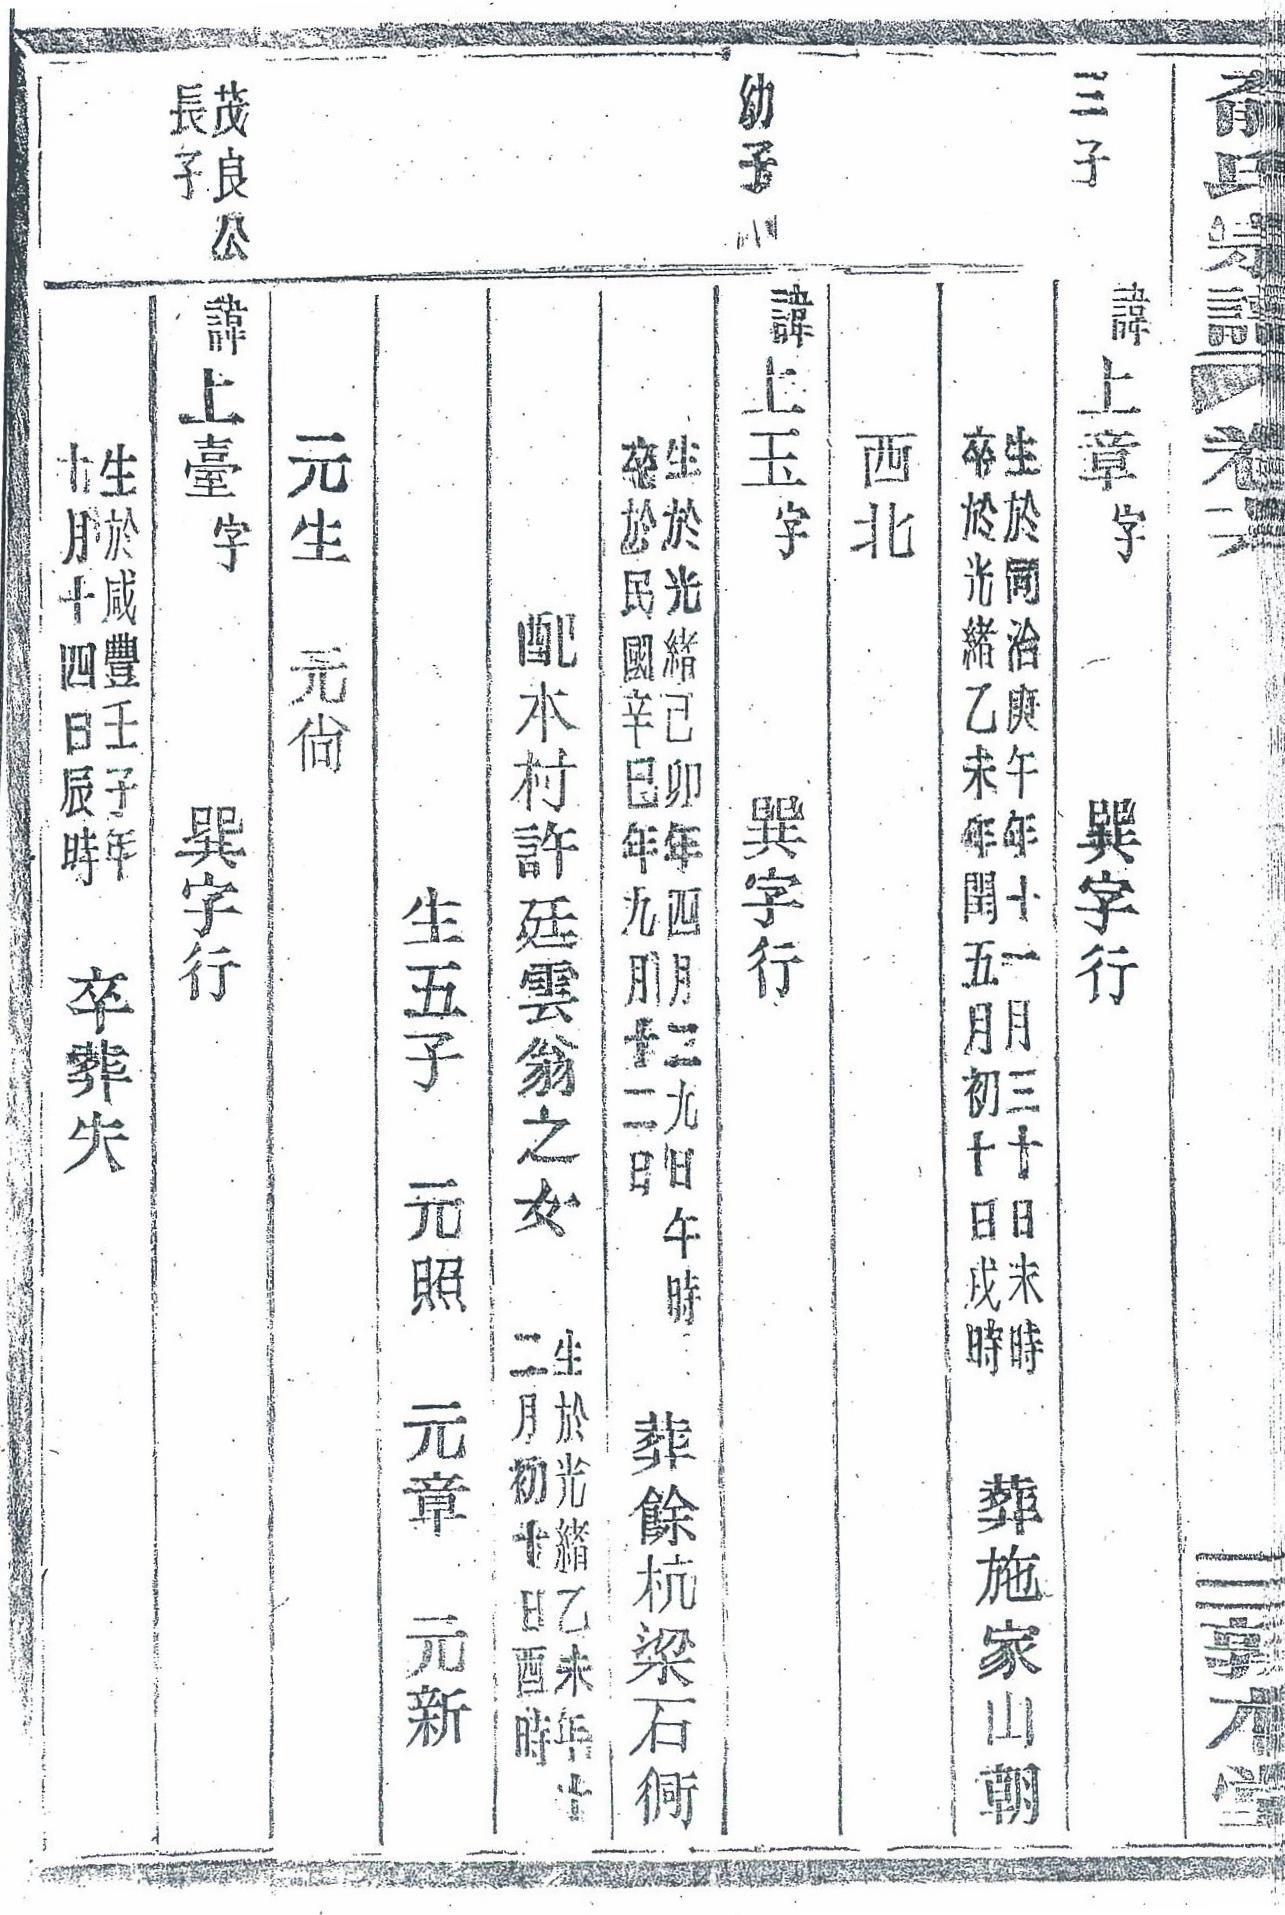 氏宗譜 卷六 敦本堂
三子
諱上章字 巽字行
生於同治庚午年十一月三十日未時
卒於光緒乙未年閏五月初十日戌時
葬施家山朝
西北
幼子
諱上玉字 巽字行
生於光緒己卯年四月二九日午時
卒於民國辛巳年九月十二日
葬餘杭梁石衕
配木村許廷雲翁之女
生於光緒乙未年十
二月初十日酉時
生五子 元照 元章 元新
元生 元尙
茂良公
長子
諱上臺字 巽字行
生於咸豐壬子年
十月十四日辰時
卒葬失